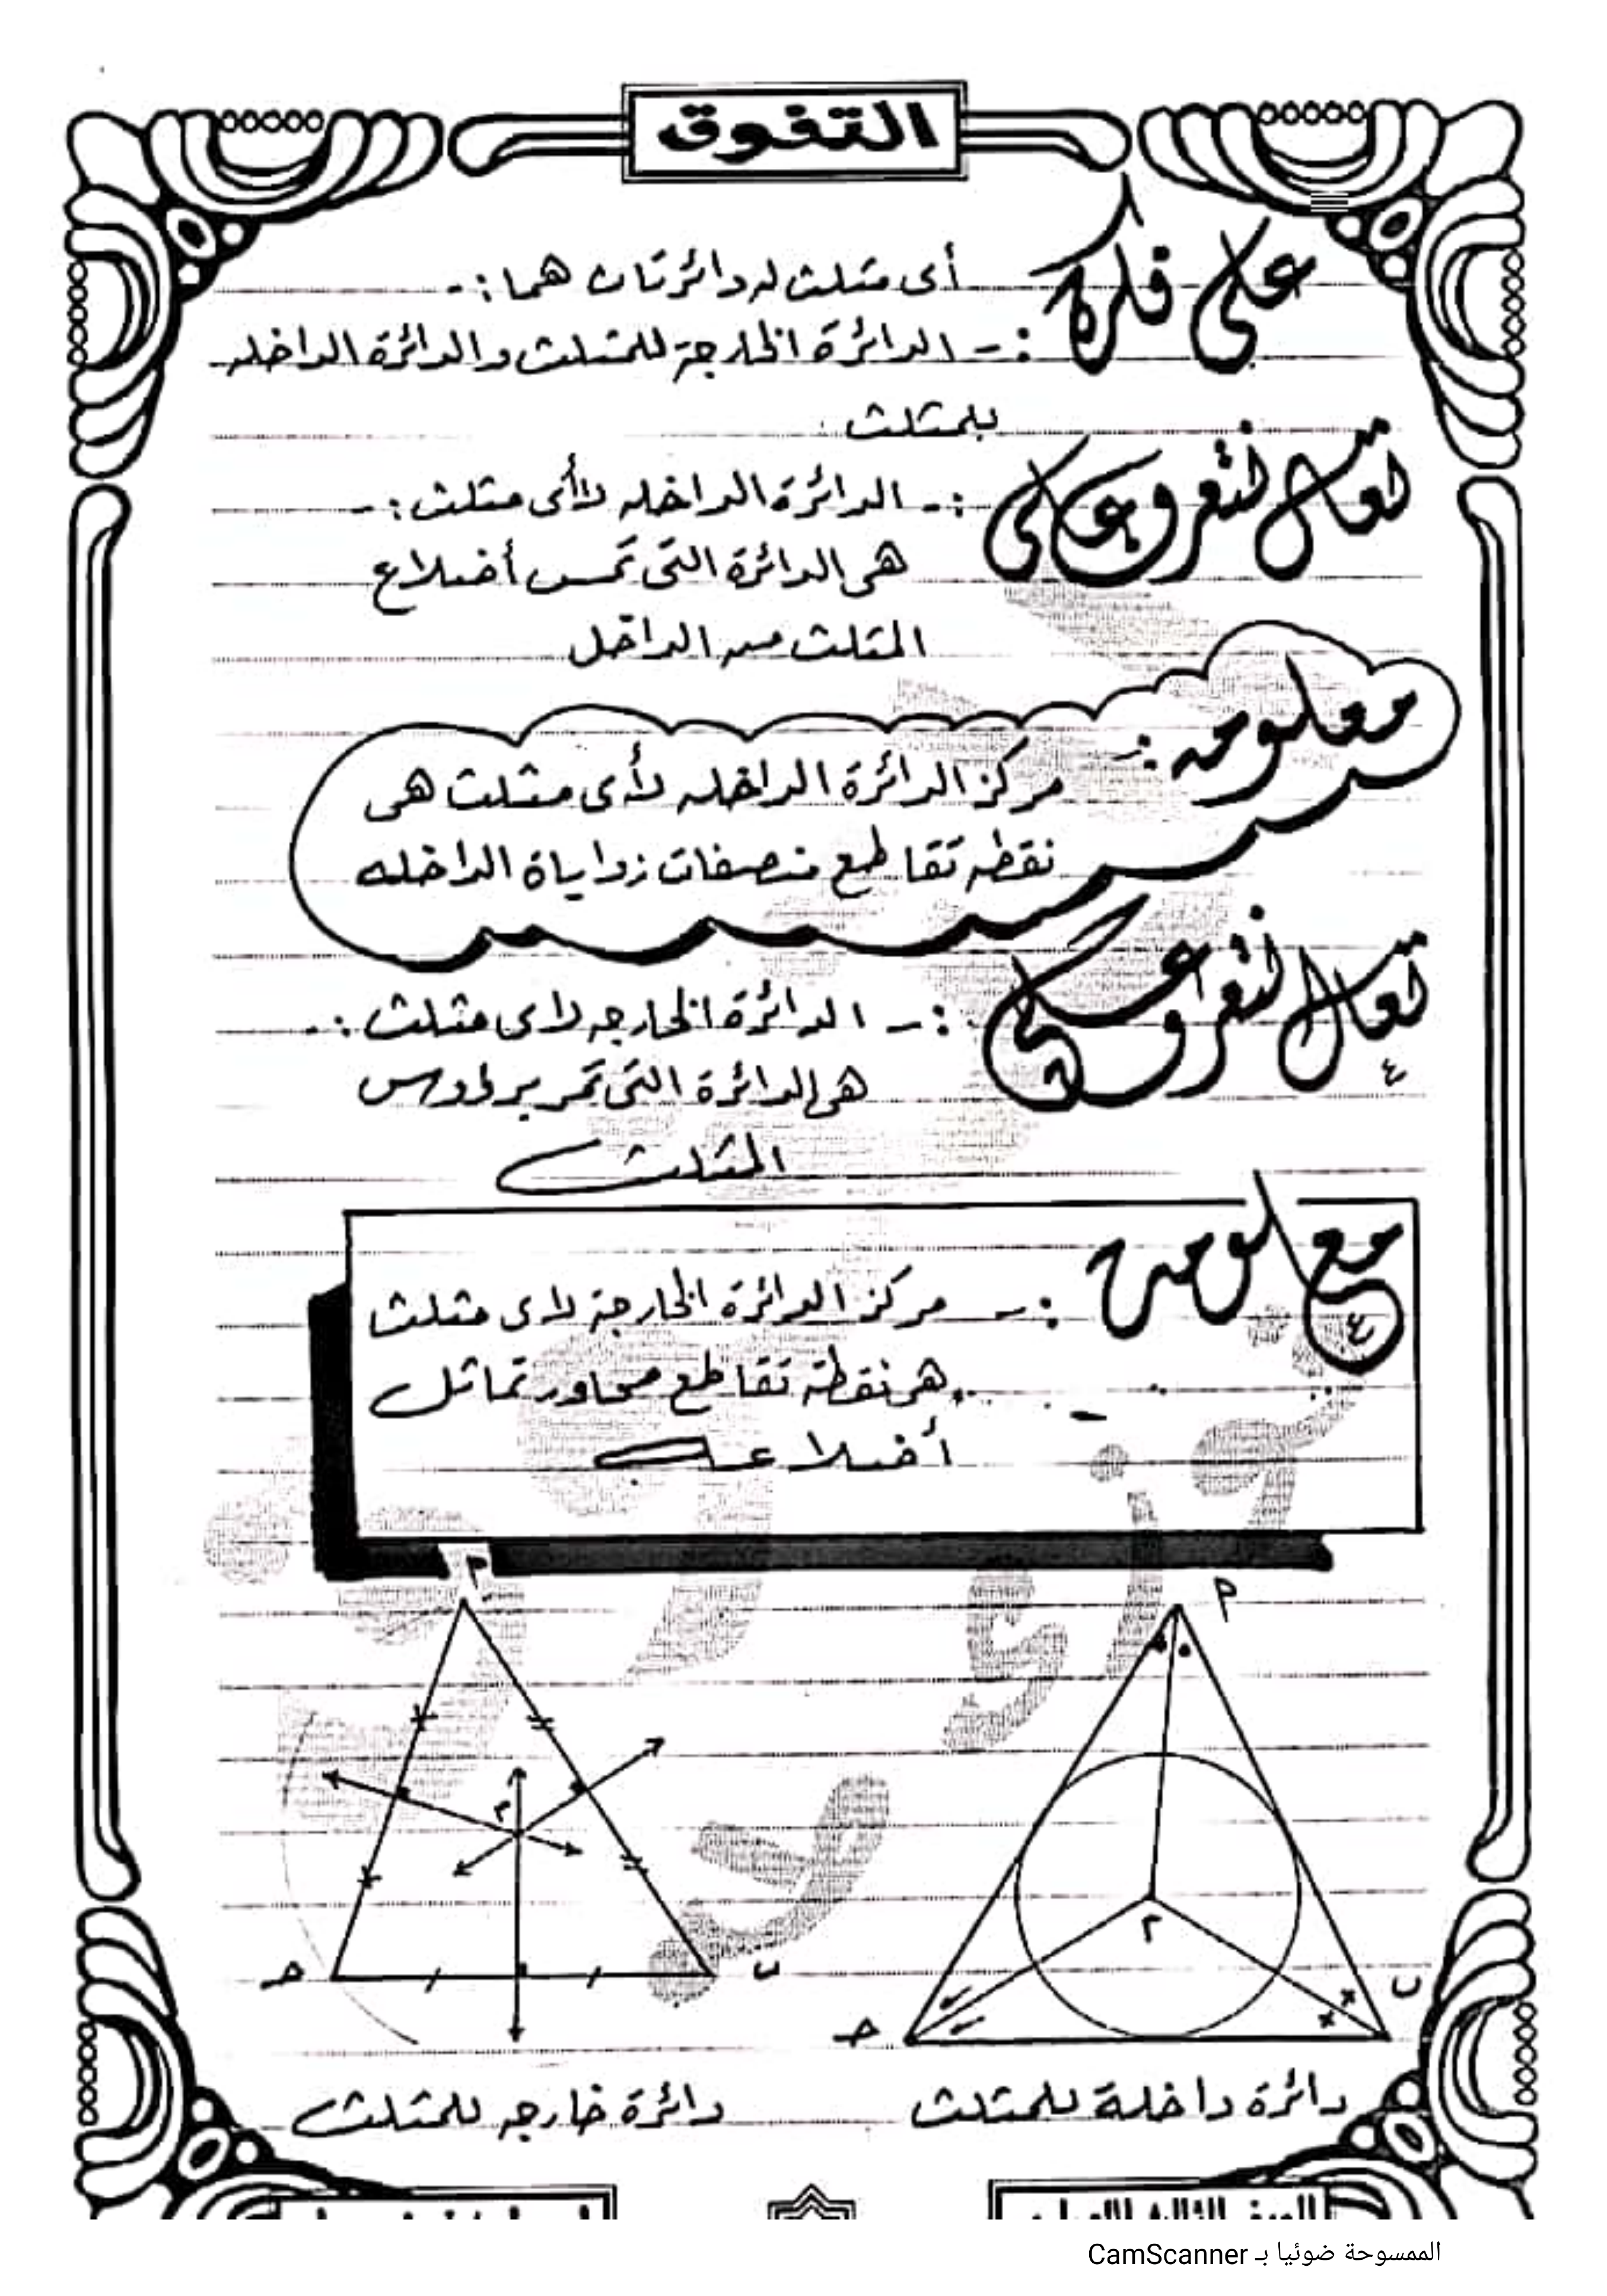 التفوق
على فكرة :- أى مثلث له دائرتان هما :-
الدائرة الخارجة للمثلث والدائرة الداخله
للمثلث
تعال نتعرف على :- الدائرة الداخله لأى مثلث :-
هى الدائرة التى تمس أضلاع
المثلث من الداخل
معلومه :-
مركز الدائرة الداخله لأى مثلث هى
نقطه تقاطع منصفات زواياة الداخله
تعال نتعرف على :- الدائرة الخارجه لاى مثلث :-
هى الدائرة التى تمر برؤوس
المثلث
معلومة :- مركز الدائرة الخارجة لاى مثلث
هى نقطة تقاطع محاور تماثل
أضلاعه
م
م
م
م
ب
ب
حـ
حـ
دائرة داخلة للمثلث
دائرة خارجه للمثلث
الممسوحة ضوئيا بـ CamScanner